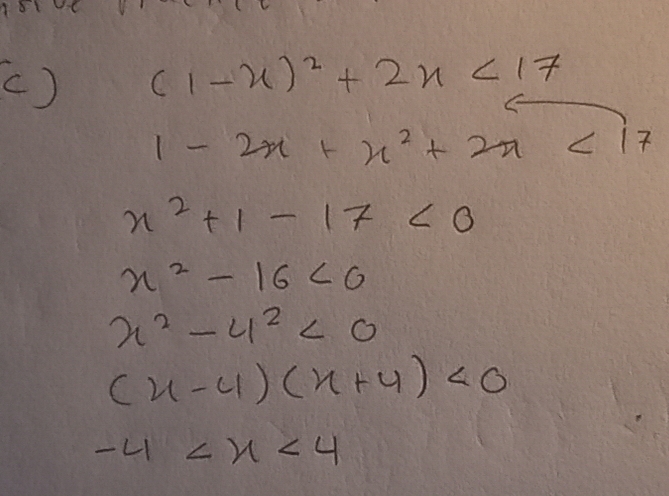 c) (1-x)² + 2x < 17
1 - 2x + x² + 2x < 17
x² + 1 - 17 < 0
x² - 16 < 0
x² - 4² < 0
(x-4)(x+4) < 0
-4 < x < 4